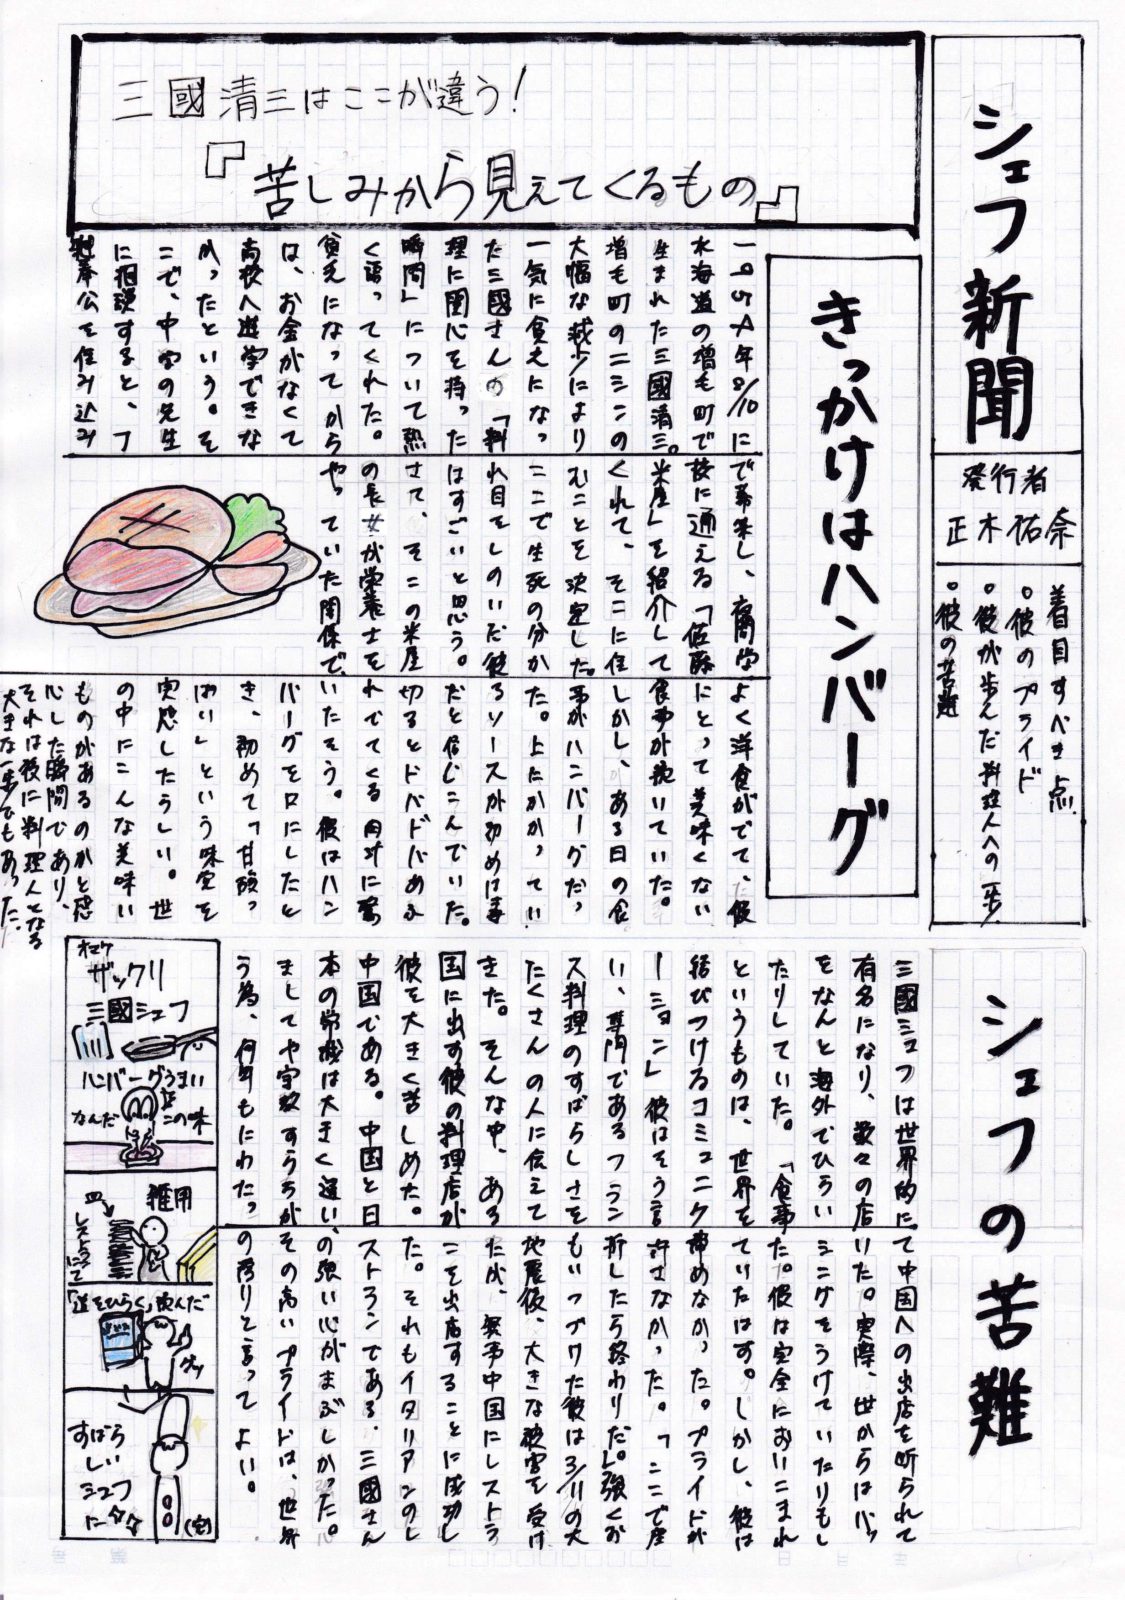 シェフ新聞
発行者
正木祐奈
着目すべき点
。彼のプライド
。彼が歩んだ料理人への一歩
。彼の苦難
三國清三はここが違う!
『苦しみから見えてくるもの』
きっかけはハンバーグ
一九五四年8/10に
北海道の増毛町で
生まれた三國清三。
増毛町のニシンの
大幅な減少により
一気に貧乏になっ
た三國さんの「料
理に関心を持った
瞬間」について熱
く語ってくれた。
貧乏になってから
は、お金がなくて
高校へ進学できな
かったという。そ
こで、中学の先生
に相談すると、丁
稚奉公を住み込み
で募集し、夜間学
校に通える「佐藤
米屋」を紹介して
くれて、そこに住
むことを決定した。
ここで生死の分か
れ目をしのいだ彼
はすごいと思う。
さて、そこの米屋
の長女が栄養士を
やっていた関係で、
よく洋食がでて、彼
にとって美味くない
食事が続いていた。
しかし、ある日の食
事がハンバーグだっ
た。上にかかってい
るソースが初めは毒
だと信じこんでいた。
切るとドバドバあふ
れでてくる肉汁に驚
いたそう。彼はハン
バーグを口にしたと
き、初めて「甘酸っ
ぱい」という味覚を
実感したらしい。世
の中にこんな美味い
ものがあるのかと感
心した瞬間であり、
それは後に料理人となる
大きな一歩でもあった。
シェフの苦難
三國シェフは世界的に
有名になり、数々の店
をなんと海外でひらい
たりしていた。「食事
というものは、世界を
結びつけるコミュニケ
ーション」彼はそう言
い、専門であるフラン
ス料理のすばらしさを
たくさんの人に伝えて
きた。そんな中、ある
国に出す彼の料理店が
彼を大きく苦しめた。
中国である。中国と日
本の常識は大きく違い、
ましてや字数すうらが
う為、何年もにわたっ
て中国への出店を断られて
いた。実際、世からはバッ
シングをうけていたりもし
た。彼は完全においこまれ
ていたはず。しかし、彼は
諦めなかった。プライドが
許さなかった。「ここで挫
折したら終わりだ。」強くお
もいつづけた彼は3/11の大
地震後、大きな被害を受け
たが、無事中国にレストラ
ンを出店することに成功し
た。それもイタリアンのレ
ストランである。三國さん
の強い心がまぶしかった。
その高いプライドは、世界
の誇りと言ってよい。
オマケ
ザックリ
三國シェフ
ハンバーグうまい
なんだこの味
雑用
皿
「道をひらく」読んだ
グッ
すばら
しい
シェフ
に々々
(完)